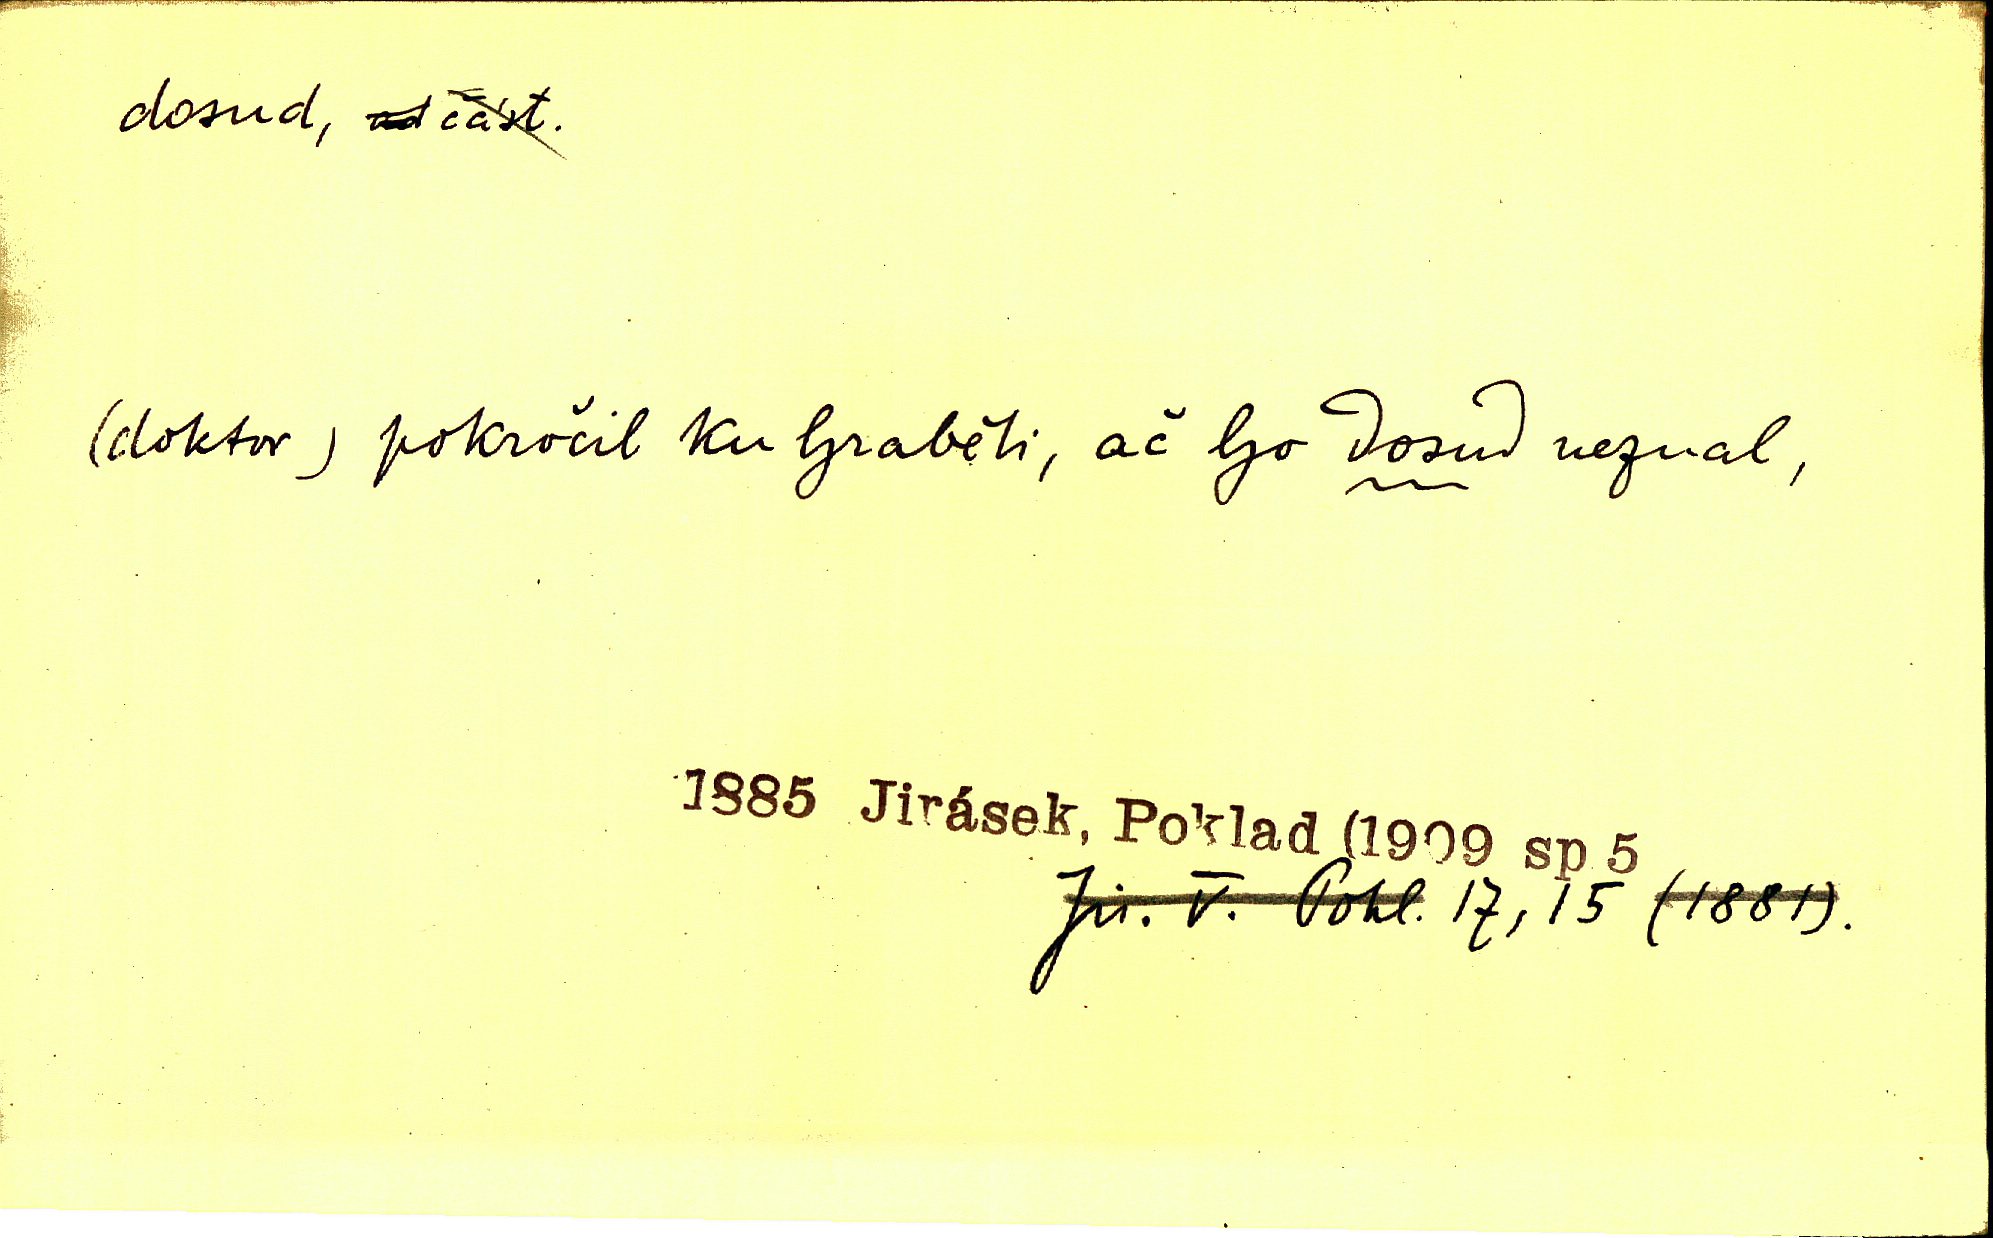 dosud, část.
(doktor) pokročil ku hraběti, ač ho dosud neznal,
1885 Jirásek, Poklad (1909 sp 5
Jir. V. Pokl. 17, 15 (1881).